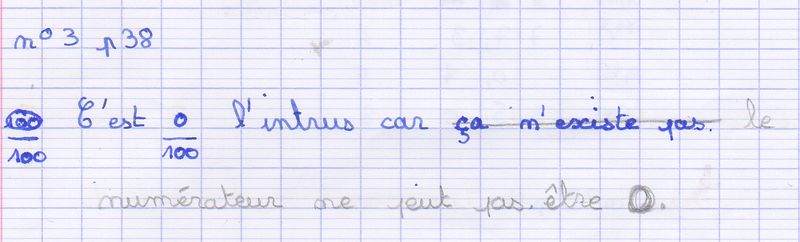 n° 3 p 38
100/100 C'est 0/100 l'intrus car ça n'existe pas. le
numérateur ne peut pas être 0.